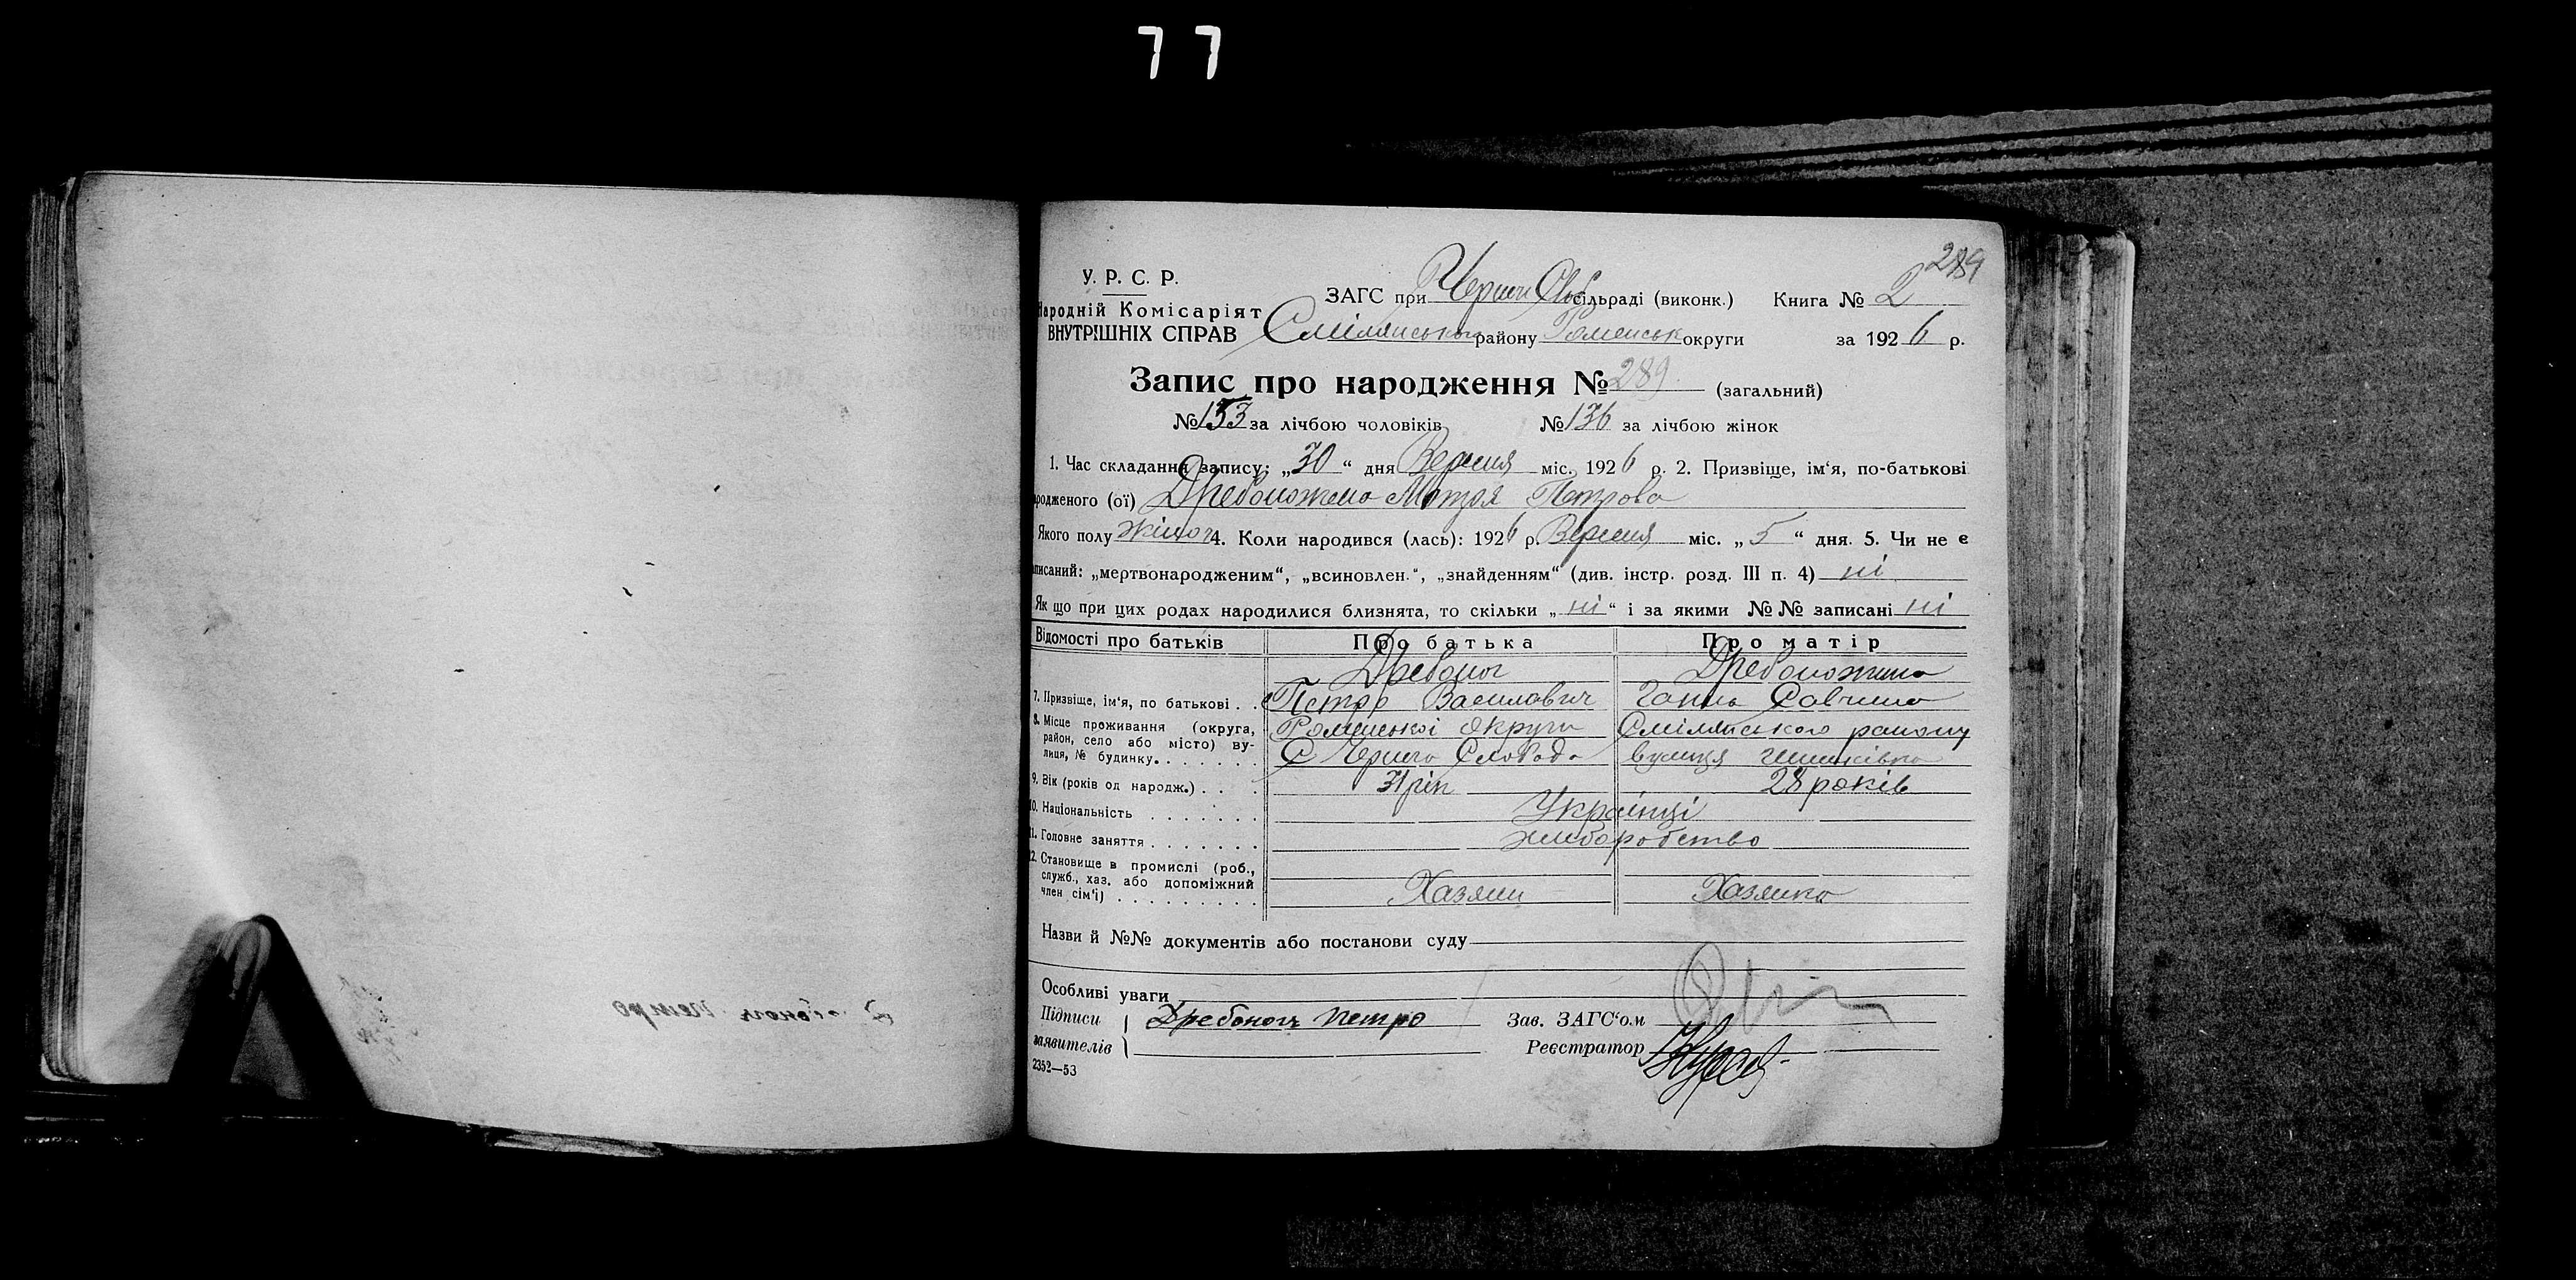 77
289
У. Р. С. Р.
Народній Комісаріят
ВНУТРІШНІХ СПРАВ
ЗАГС при Черно Слоб сільраді (виконк.) Книга № 2
Смілянського району Роменськ округи за 1926 р.
Запис про народження № 289 (загальний)
№ 153 за лічбою чоловіків № 136 за лічбою жінок
1. Час складання запису: „30“ дня Вересня міс. 1926 р. 2. Призвіще, ім‘я, по-батькові
родженого (ої) Дребоножена Мотря Петрова
Якого полу жіноч 4. Коли народився (лась): 1926 р. Вересня міс. „5“ дня. 5. Чи не є
писаний: „мертвонародженим“, „всиновлен.“, „знайденням“ (див. інстр. розд. III п. 4) ні
Як що при цих родах народилися близнята, то скільки „ні“ і за якими №№ записані ні
Відомості про батьків Про батька Про матір
Дребоног Дребоножина
7. Призвіще, ім‘я, по батькові . . Петро Василович Ганна Савчина
8. Місце проживання (округа, район, село або місто) вулиця, № будинку. Роменської округи Смілянського району
С Черна Слобода вулиця
9. Вік (років од народж.) . . . 31 рік 28 років
10. Національність . . . . . . . Українці
11. Головне заняття . . . . . . . хліборобство
12. Становище в промислі (роб.,
служб., хаз. або допоміжний
член сім‘ї) . . . . . . . . . Хазяин Хазяика
Назви й №№ документів або постанови суду
Особливі уваги
Підписи Дребоног Петро Зав. ЗАГС‘ом
заявителів Реєстратор
2352—53